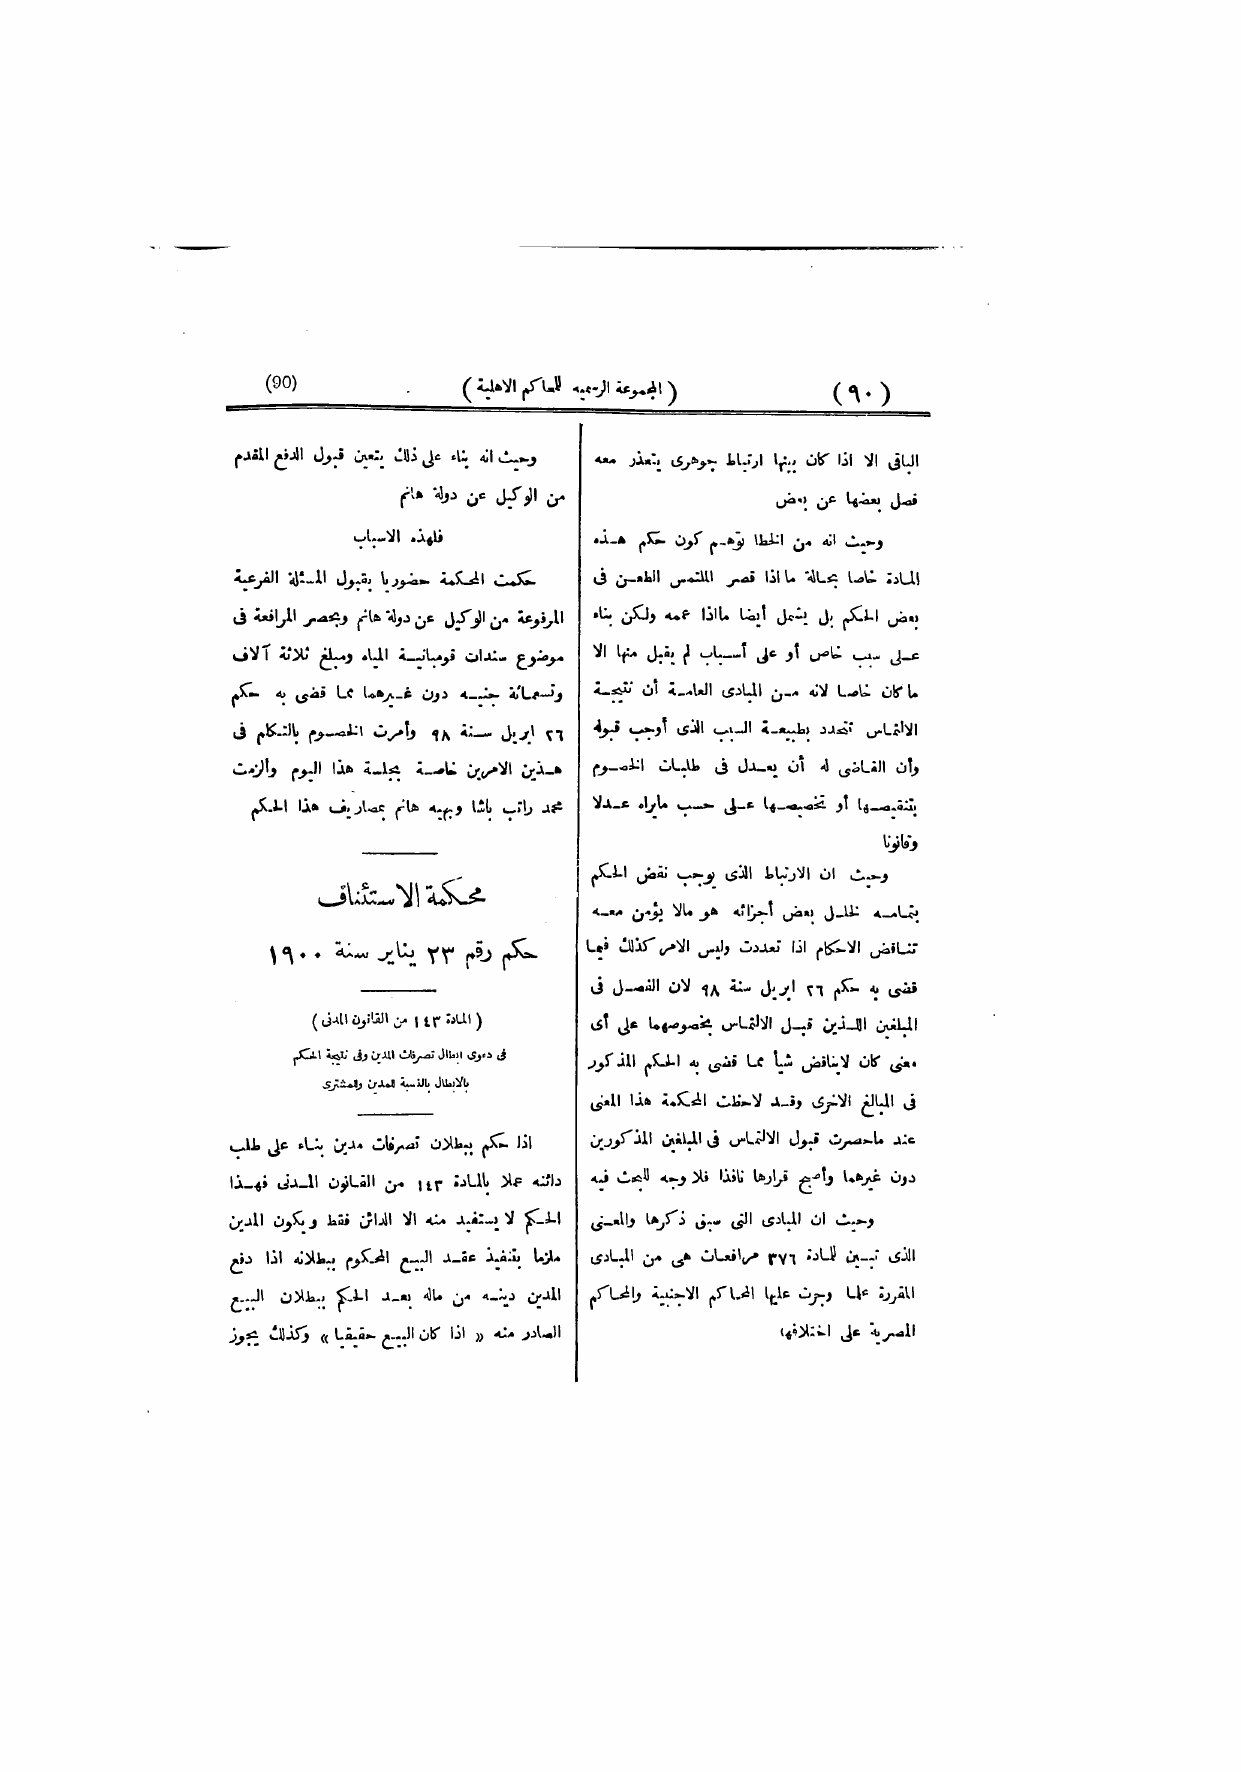 (٩٠)
(المجموعة الرسميه للمحاكم الاهلية)
(90)
الباقى الا اذا كان بينها ارتباط جوهرى يتعذر معه
فصل بعضها عن بعض
وحيث انه من الخطا توهم كون حكم هذه
المادة خاصا بحالة ما اذا قصر الملتمس الطعن فى
بعض الحكم بل يشمل أيضا مااذا عممه ولكن بناه
على سبب خاص أو على أسباب لم يقبل منها الا
ما كان خاصا لانه من المبادى العامة أن نتيجة
الالتماس تتحدد بطبيعة السبب الذى أوجب قبوله
وأن القاضى له أن يعدل فى طلبات الخصوم
بتنقيصها أو تخصيصها على حسب مايراه عدلا
وقانونا
وحيث ان الارتباط الذى يوجب نقض الحكم
بتمامه لخلل بعض أجزائه هو مالا يؤمن معه
تناقض الاحكام اذا تعددت وليس الامر كذلك فيما
قضى به حكم ٢٦ ابريل سنة ٩٨ لان الفصل فى
المبلغين اللذين قبل الالتماس بخصوصهما على أى
معنى كان لايناقض شيأ مما قضى به الحكم المذكور
فى المبالغ الاخرى وقد لاحظت المحكمة هذا المعنى
عند ماحصرت قبول الالتماس فى المبلغين المذكورين
دون غيرهما وأصبح قرارها نافذا فلا وجه للبحث فيه
وحيث ان المبادى التى سبق ذكرها والمعنى
الذى تبين للمادة ٣٧٦ مرافعات هى من المبادى
المقررة علما وجرت عليها المحاكم الاجنبية والمحاكم
المصرية على اختلافها
وحيث انه بناء على ذلك يتعين قبول الدفع المقدم
من الوكيل عن دولة هانم
فلهذه الاسباب
حكمت المحكمة حضوريا بقبول المسئلة الفرعية
المرفوعة من الوكيل عن دولة هانم وبحصر المرافعة فى
موضوع سندات قومبانية المياه ومبلغ ثلاثة آلاف
وتسعمائة جنيه دون غيرهما مما قضى به حكم
٢٦ ابريل سنة ٩٨ وأمرت الخصوم بالتكلم فى
هذين الامرين خاصة بجلسة هذا اليوم وألزمت
محمد راتب باشا وبهيه هانم بمصاريف هذا الحكم
محكمة الاستئناف
حكم رقم ٢٣ يناير سنة ١٩٠٠
(المادة ١٤٣ من القانون المدنى)
فى دعوى ابطال تصرفات المدين وفى نتيجة الحكم
بالابطال بالنسبة للمدين والمشترى
اذا حكم ببطلان تصرفات مدين بناء على طلب
دائنه عملا بالمادة ١٤٣ من القانون المدنى فهذا
الحكم لا يستفيد منه الا الدائن فقط ويكون المدين
ملزما بتنفيذ عقد البيع المحكوم ببطلانه اذا دفع
المدين دينه من ماله بعد الحكم ببطلان البيع
الصادر منه « اذا كان البيع حقيقيا » وكذلك يجوز